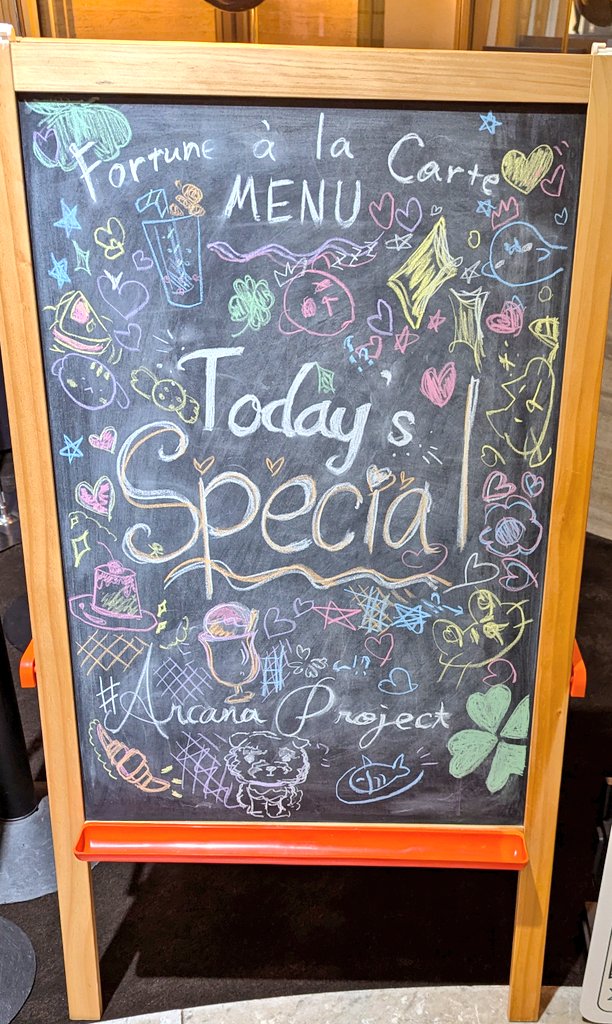 Fortune à la Carte
MENU
Today's
Special
#Arcana Project